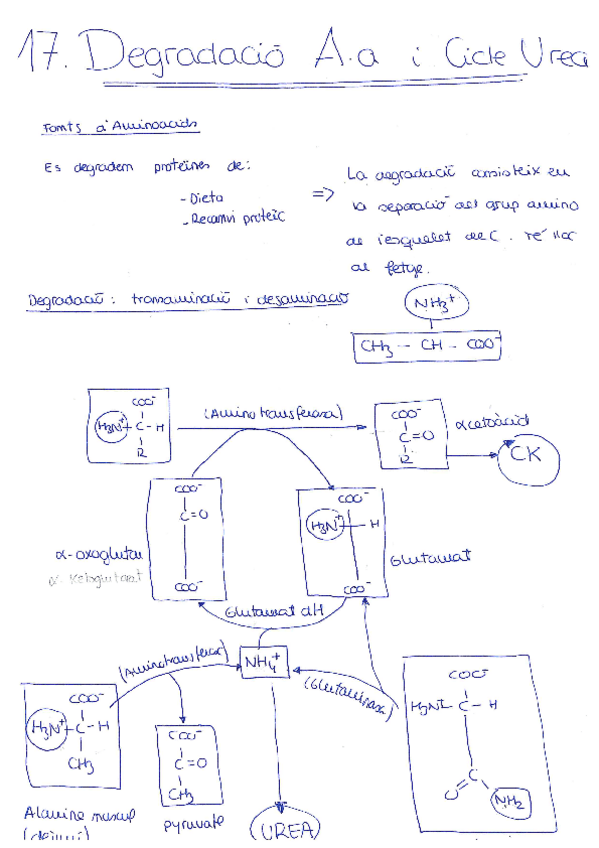 17. Degradació A.a i Cicle Urea
Fonts d'Aminoàcids
Es degraden proteïnes de:
- Dieta
- Recanvi proteic
=> La degradació consisteix en
la separació del grup amino
de l'esquelet de C. Té lloc
al fetge.
Degradació: transaminació i desaminació
NH3+
CH3 - CH - COO-
COO-
H3N+ - C - H
R
(Aminotransferasa)
COO-
C=O
R
α cetoàcid
CK
COO-
C=O
COO-
α-oxoglutar
α Ketoglutarat
COO-
H3N+ H
COO-
Glutamat
Glutamat dH
NH4+
(Aminotransferasa)
(Glutaminasa)
COO-
H3N+ - C - H
CH3
Alanine muscul
(dejuni)
COO-
C=O
CH3
pyruvate
(UREA)
COO-
H3N+ - C - H
C
O
NH2